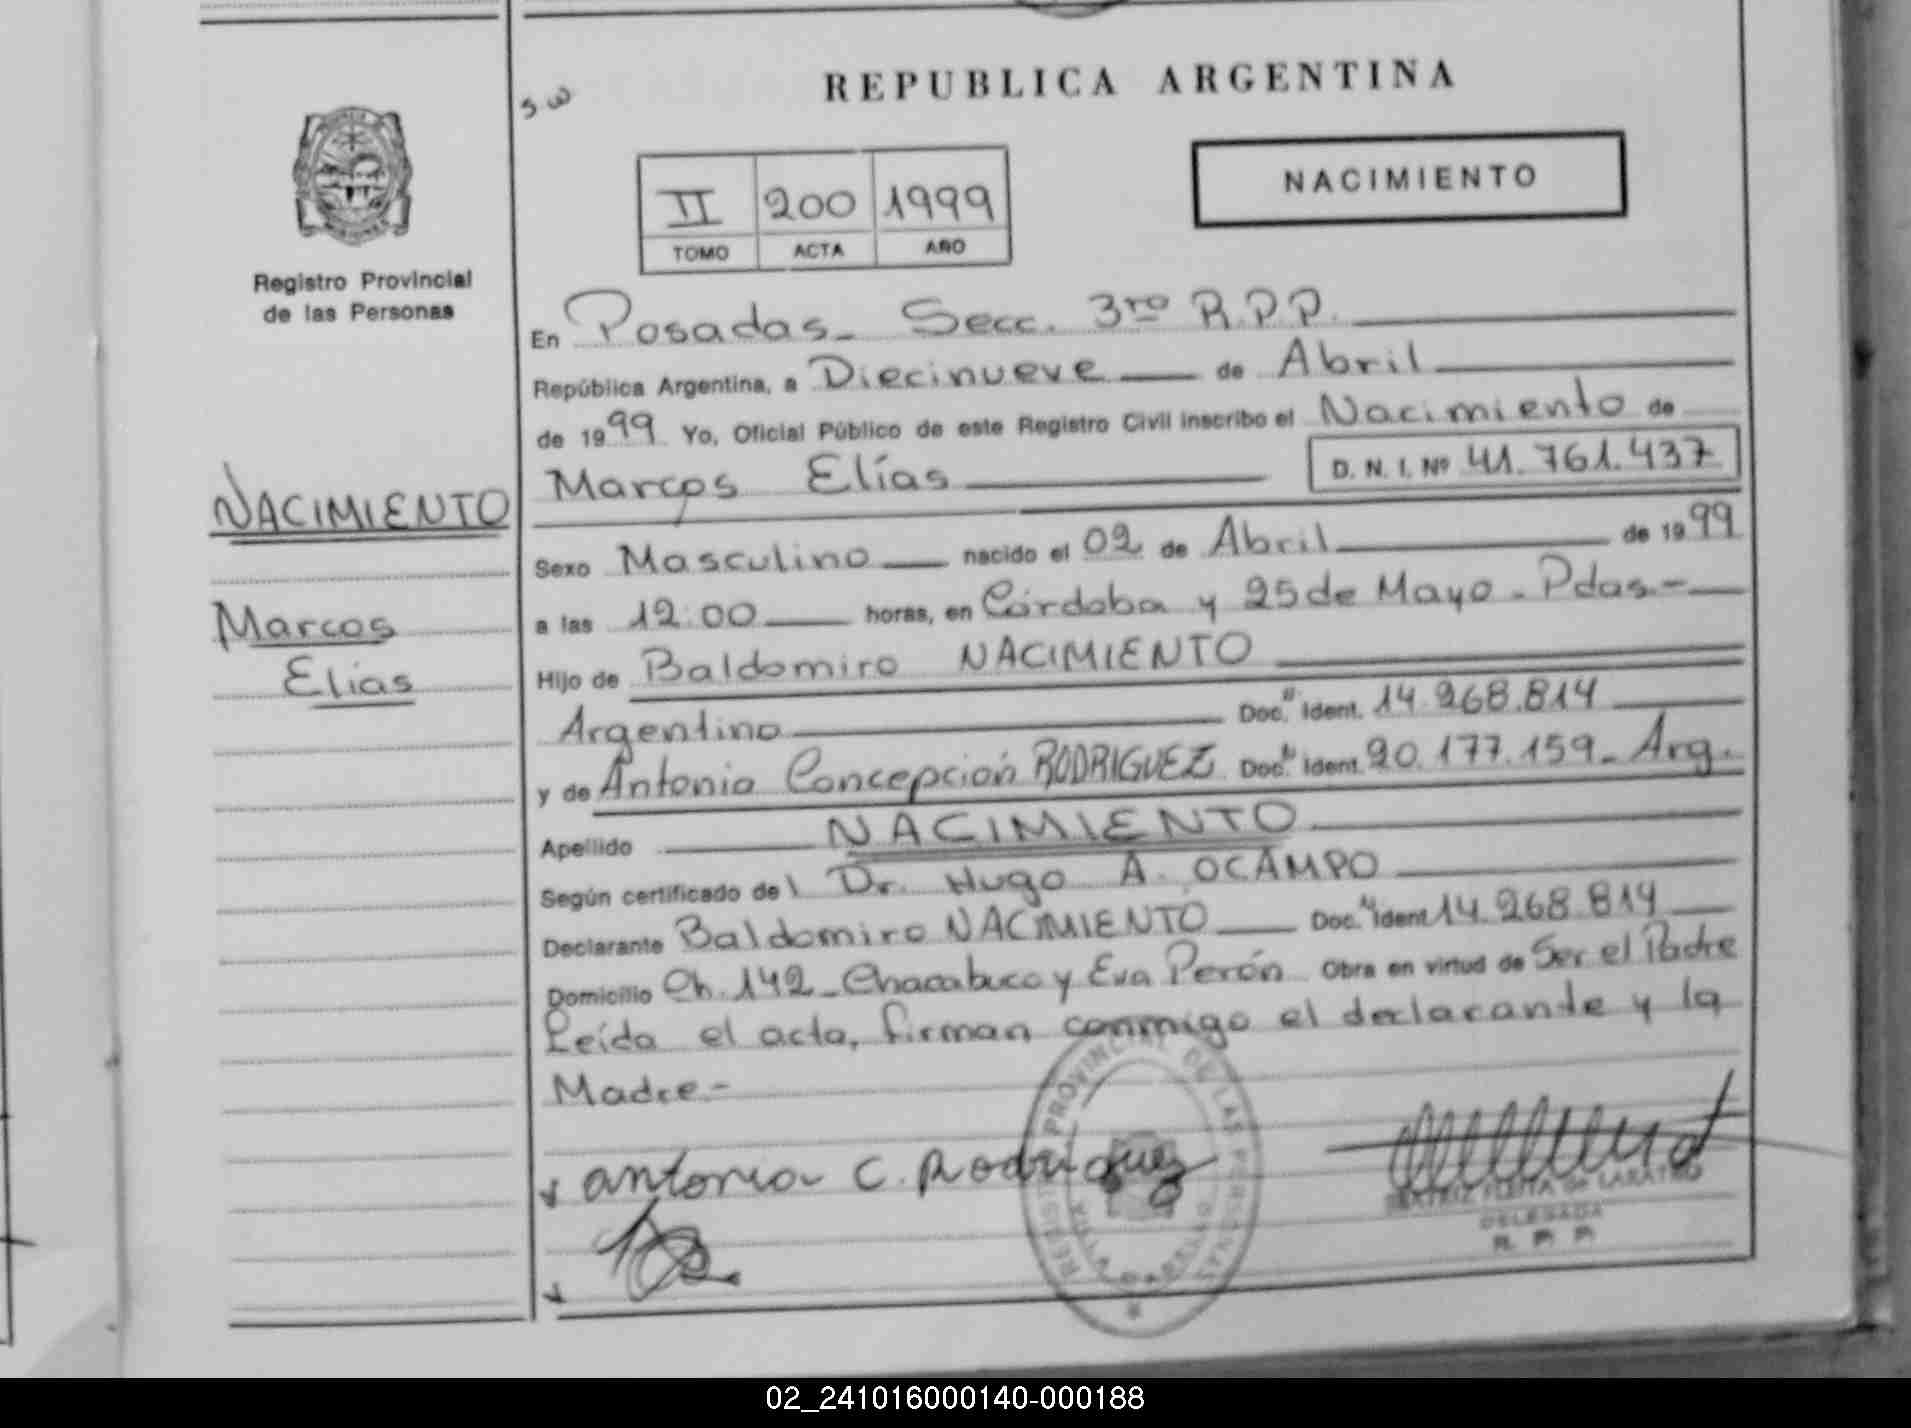 REPUBLICA ARGENTINA
NACIMIENTO
II 200 1999
TOMO ACTA AÑO
Registro Provincial
de las Personas
En Posadas - Secc. 3ro R.P.P.
República Argentina, a Diecinueve de Abril
de 1999 Yo, Oficial Público de este Registro Civil inscribo el Nacimiento de
Marcos Elías D. N. I. Nº 41.761.437
NACIMIENTO
Marcos
Elías
Sexo Masculino nacido el 02 de Abril de 1999
a las 12:00 horas, en Córdoba y 25 de Mayo - Pdas -
Hijo de Baldomiro NACIMIENTO
Argentino Doc. Ident. 14.268.814
y de Antonia Concepción RODRIGUEZ Doc. Ident. 20.177.159 - Arg.
Apellido NACIMIENTO
Según certificado del Dr. Hugo A. OCAMPO
Declarante Baldomiro NACIMIENTO Doc. Ident 14.268.814
Domicilio Ch. 142 - Chacabuco y Eva Perón Obra en virtud de Ser el Padre
Leída el acta, firman conmigo el declarante y la
Madre -
Antonia C. Rodriguez
REGISTRO PROVINCIAL DE LAS PERSONAS
VILLA CABELLO
DELEGADA
R. P. P.
02_241016000140-000188